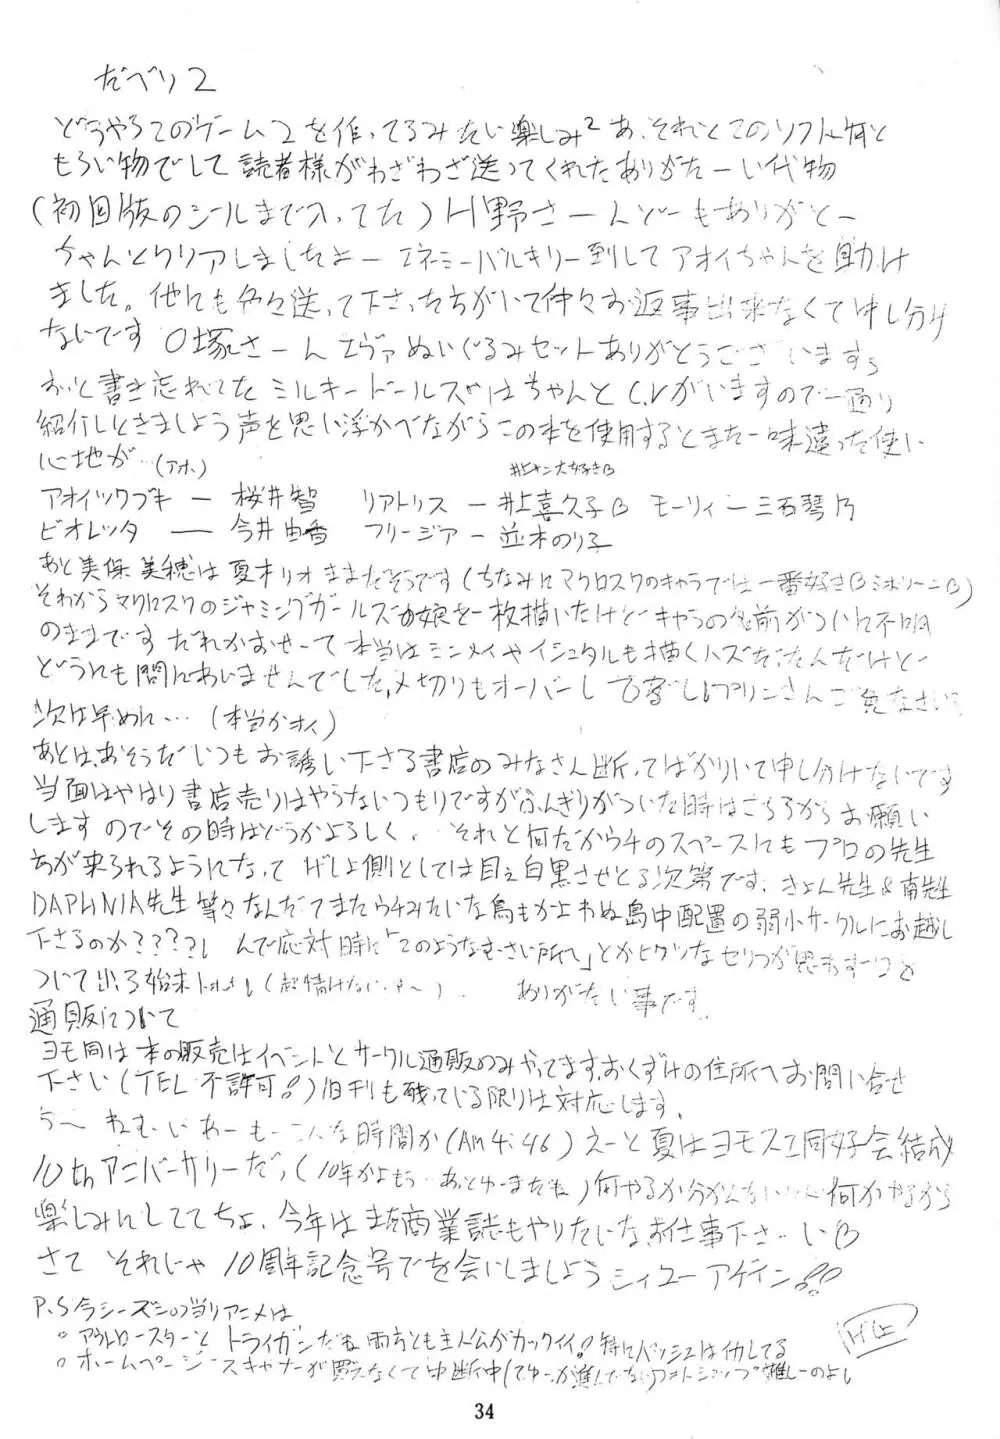 だべり2
どうやらこのゲーム2を作ってるみたい楽しみ2 あ、それとこのソフト何と
もらい物でして読者様がわざわざ送ってくれたありがたーい代物
(初回版のシールまで入ってた) H野さーんどーもありがとー
ちゃんとクリアしましたよー エネミーバルキリー倒してアオイちゃんを助け
ました。他にも色々送って下さった方がいて中々お返事出来なくて申し分け
ないです O塚さーん エヴァぬいぐるみセットありがとうございます
おっと書き忘れてた ミルキードールズにはちゃんとC.Vがいますので一通り
紹介しときましょう声を思い浮かべながらこの本を使用するとまた一味違った使い
心地が…(アホ)
井上キャン大好き
アオイツクブキー 桜井智 リアトリスー井上喜久子 モーリィー三石琴乃
ビオレッタ ― 今井由香 フリージアー並木のり子
あと美保美穂は夏木リオ まんまだそうです(ちなみにマクロスクのキャラでは一番好き ミホリーニ)
それからマクロスクのジャミングガールズの娘を一枚描いたけどキャラの名前がついに不明
のままです だれかおせーて 本当はミンメイやイシュタルも描くハズだったんだけど
どうにも間にあいませんでした。〆切りもオーバーし プリンさんご免なさい
次は早めに…(本当かオイ)
あとは、あそうだいつもお誘い下さる書店のみなさん断ってばかりいて申し分けないです
当面はやはり書店売りはやらないつもりですがふんぎりがついた時はこちらからお願い
しますのでその時はどうかよろしく、それと何だかウチのスペースにもプロの先生
方が来られるようになって げしょ側としては目え白黒させとる次第です、きょん先生&南先生
DAPHNIA先生等々なんだてまたウチみたいな鳥もかよわぬ島中配置の弱小サークルにお越し
下さるのか????! んで応対時に「このようなむさい所へ」とかヒクツなセリフが思わず口を
ついて出る始末 (超情けない) ありがたい事です
通販について
ヨモ同は本の販売はイベントとサークル通販のみやってます、おくずけの住所へお問い合せ
下さい(TEL不許可!)旧刊も残っている限りは対応します。
う〜 ねむーいわーもーこんな時間か(Am4:46)えーと夏はヨモスエ同好会結成
10thアニバーサリーだっ(10年かよもう…あっとゆーまだね)何やるか分かんないけど何かやるから
楽しみにしててちょ、今年はまた商業誌もやりたいな お仕事下さーい
さて それじゃ 10周年記念号でお会いしましょう シィユーアゲイン!!
P.S今シーズンの当りアニメは
○アウトロースターとトライガンだね両方とも主人公がカックイイ! 特にバッシュはイカしてる
○ホームページ スキャナーが買えなくて中断中(てゆーか進んでない)フォトショップ難しーのよし
34